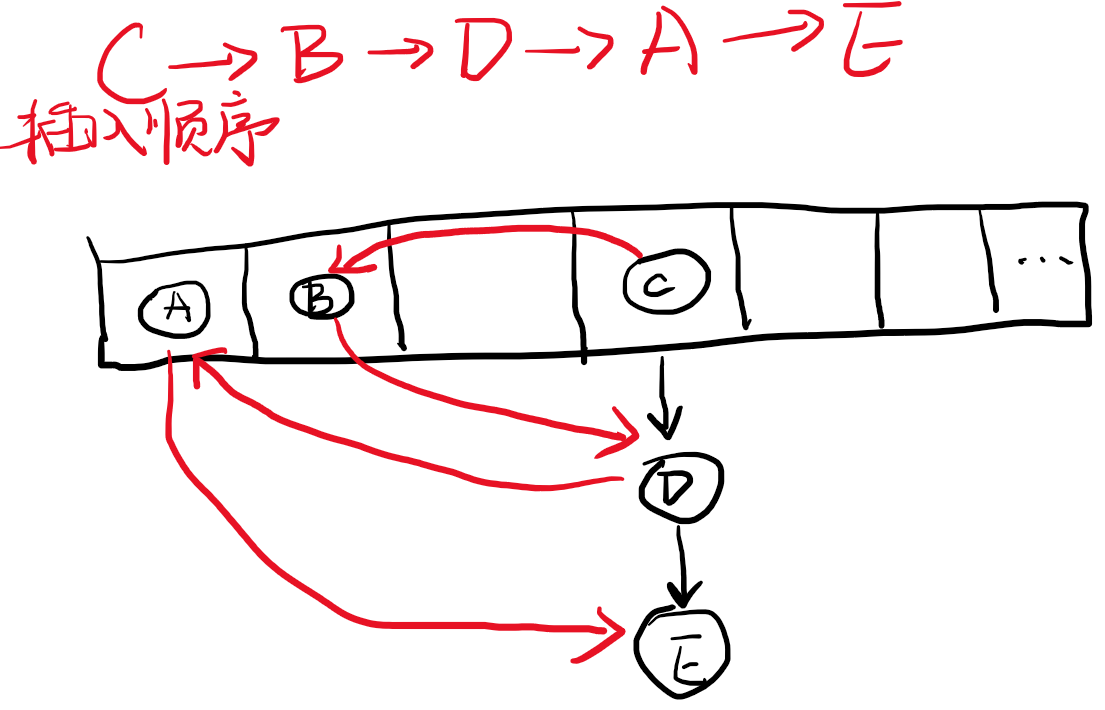 C→B→D→A→E
插入顺序
A B C ...
D
E